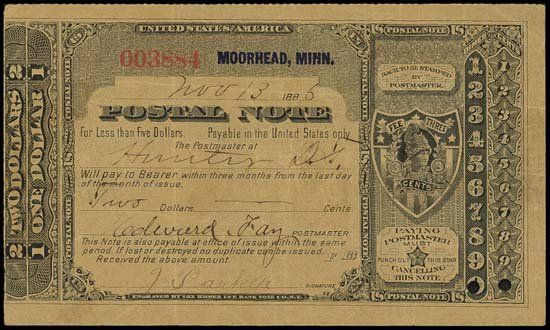 UNITED STATES OF AMERICA
POSTAL NOTE
003884 MOORHEAD, MINN.
Nov 13 188
POSTAL NOTE
For Less than five Dollars. Payable in the United States only.
The Postmaster at
Hunter D.T.
Will pay to Bearer within three months from the last day
of the month of issue.
Two Dollars Cents.
Edward Fay POSTMASTER
This Note is also payable at office of issue within the same
period. If lost or destroyed no duplicate can be issued.
Received the above amount.
SIGNATURE
ENGRAVED BY THE HOMER LEE BANK NOTE CO. N.Y.
2 TWO DOLLARS 2
1 ONE DOLLAR 1
POSTAL NOTE
BACK TO BE STAMPED
BY
POSTMASTER.
FEE THREE
CENTS
PAYING
POSTMASTER
MUST
PUNCH OUT THIS STAR
CANCELLING
THIS NOTE
POSTAL NOTE
1
2
3
4
5
6
7
8
9
0
1
2
3
4
5
6
7
8
9
0